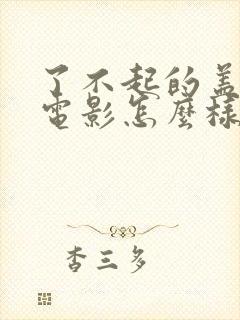 了不起的盖
電影怎麼樣
杏三多